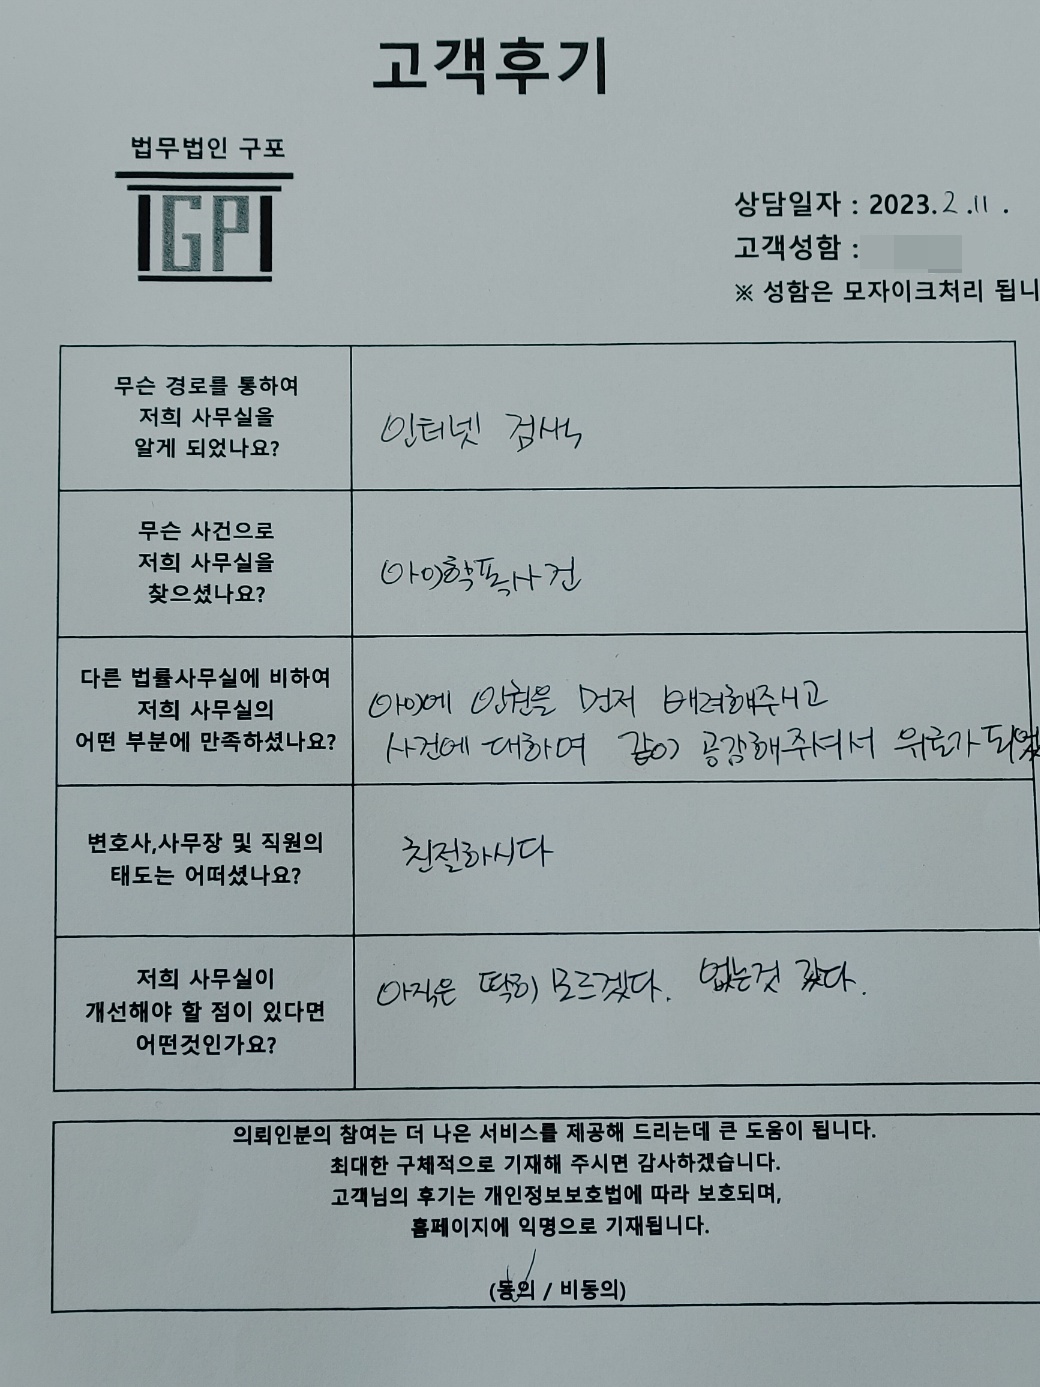 고객후기
법무법인 구포
GP
상담일자 : 2023. 2 .11 .
고객성함 :
※ 성함은 모자이크처리 됩니
무슨 경로를 통하여
저희 사무실을
알게 되었나요?
인터넷 검색
무슨 사건으로
저희 사무실을
찾으셨나요?
아이학폭사건
다른 법률사무실에 비하여
저희 사무실의
어떤 부분에 만족하셨나요?
아이에 인권을 먼저 배려해주시고
사건에 대하여 같이 공감해주셔서 위로가 되었
변호사,사무장 및 직원의
태도는 어떠셨나요?
친절하시다
저희 사무실이
개선해야 할 점이 있다면
어떤것인가요?
아직은 딱히 모르겠다. 없는것 같다.
의뢰인분의 참여는 더 나은 서비스를 제공해 드리는데 큰 도움이 됩니다.
최대한 구체적으로 기재해 주시면 감사하겠습니다.
고객님의 후기는 개인정보보호법에 따라 보호되며,
홈페이지에 익명으로 기재됩니다.
(동의 / 비동의)